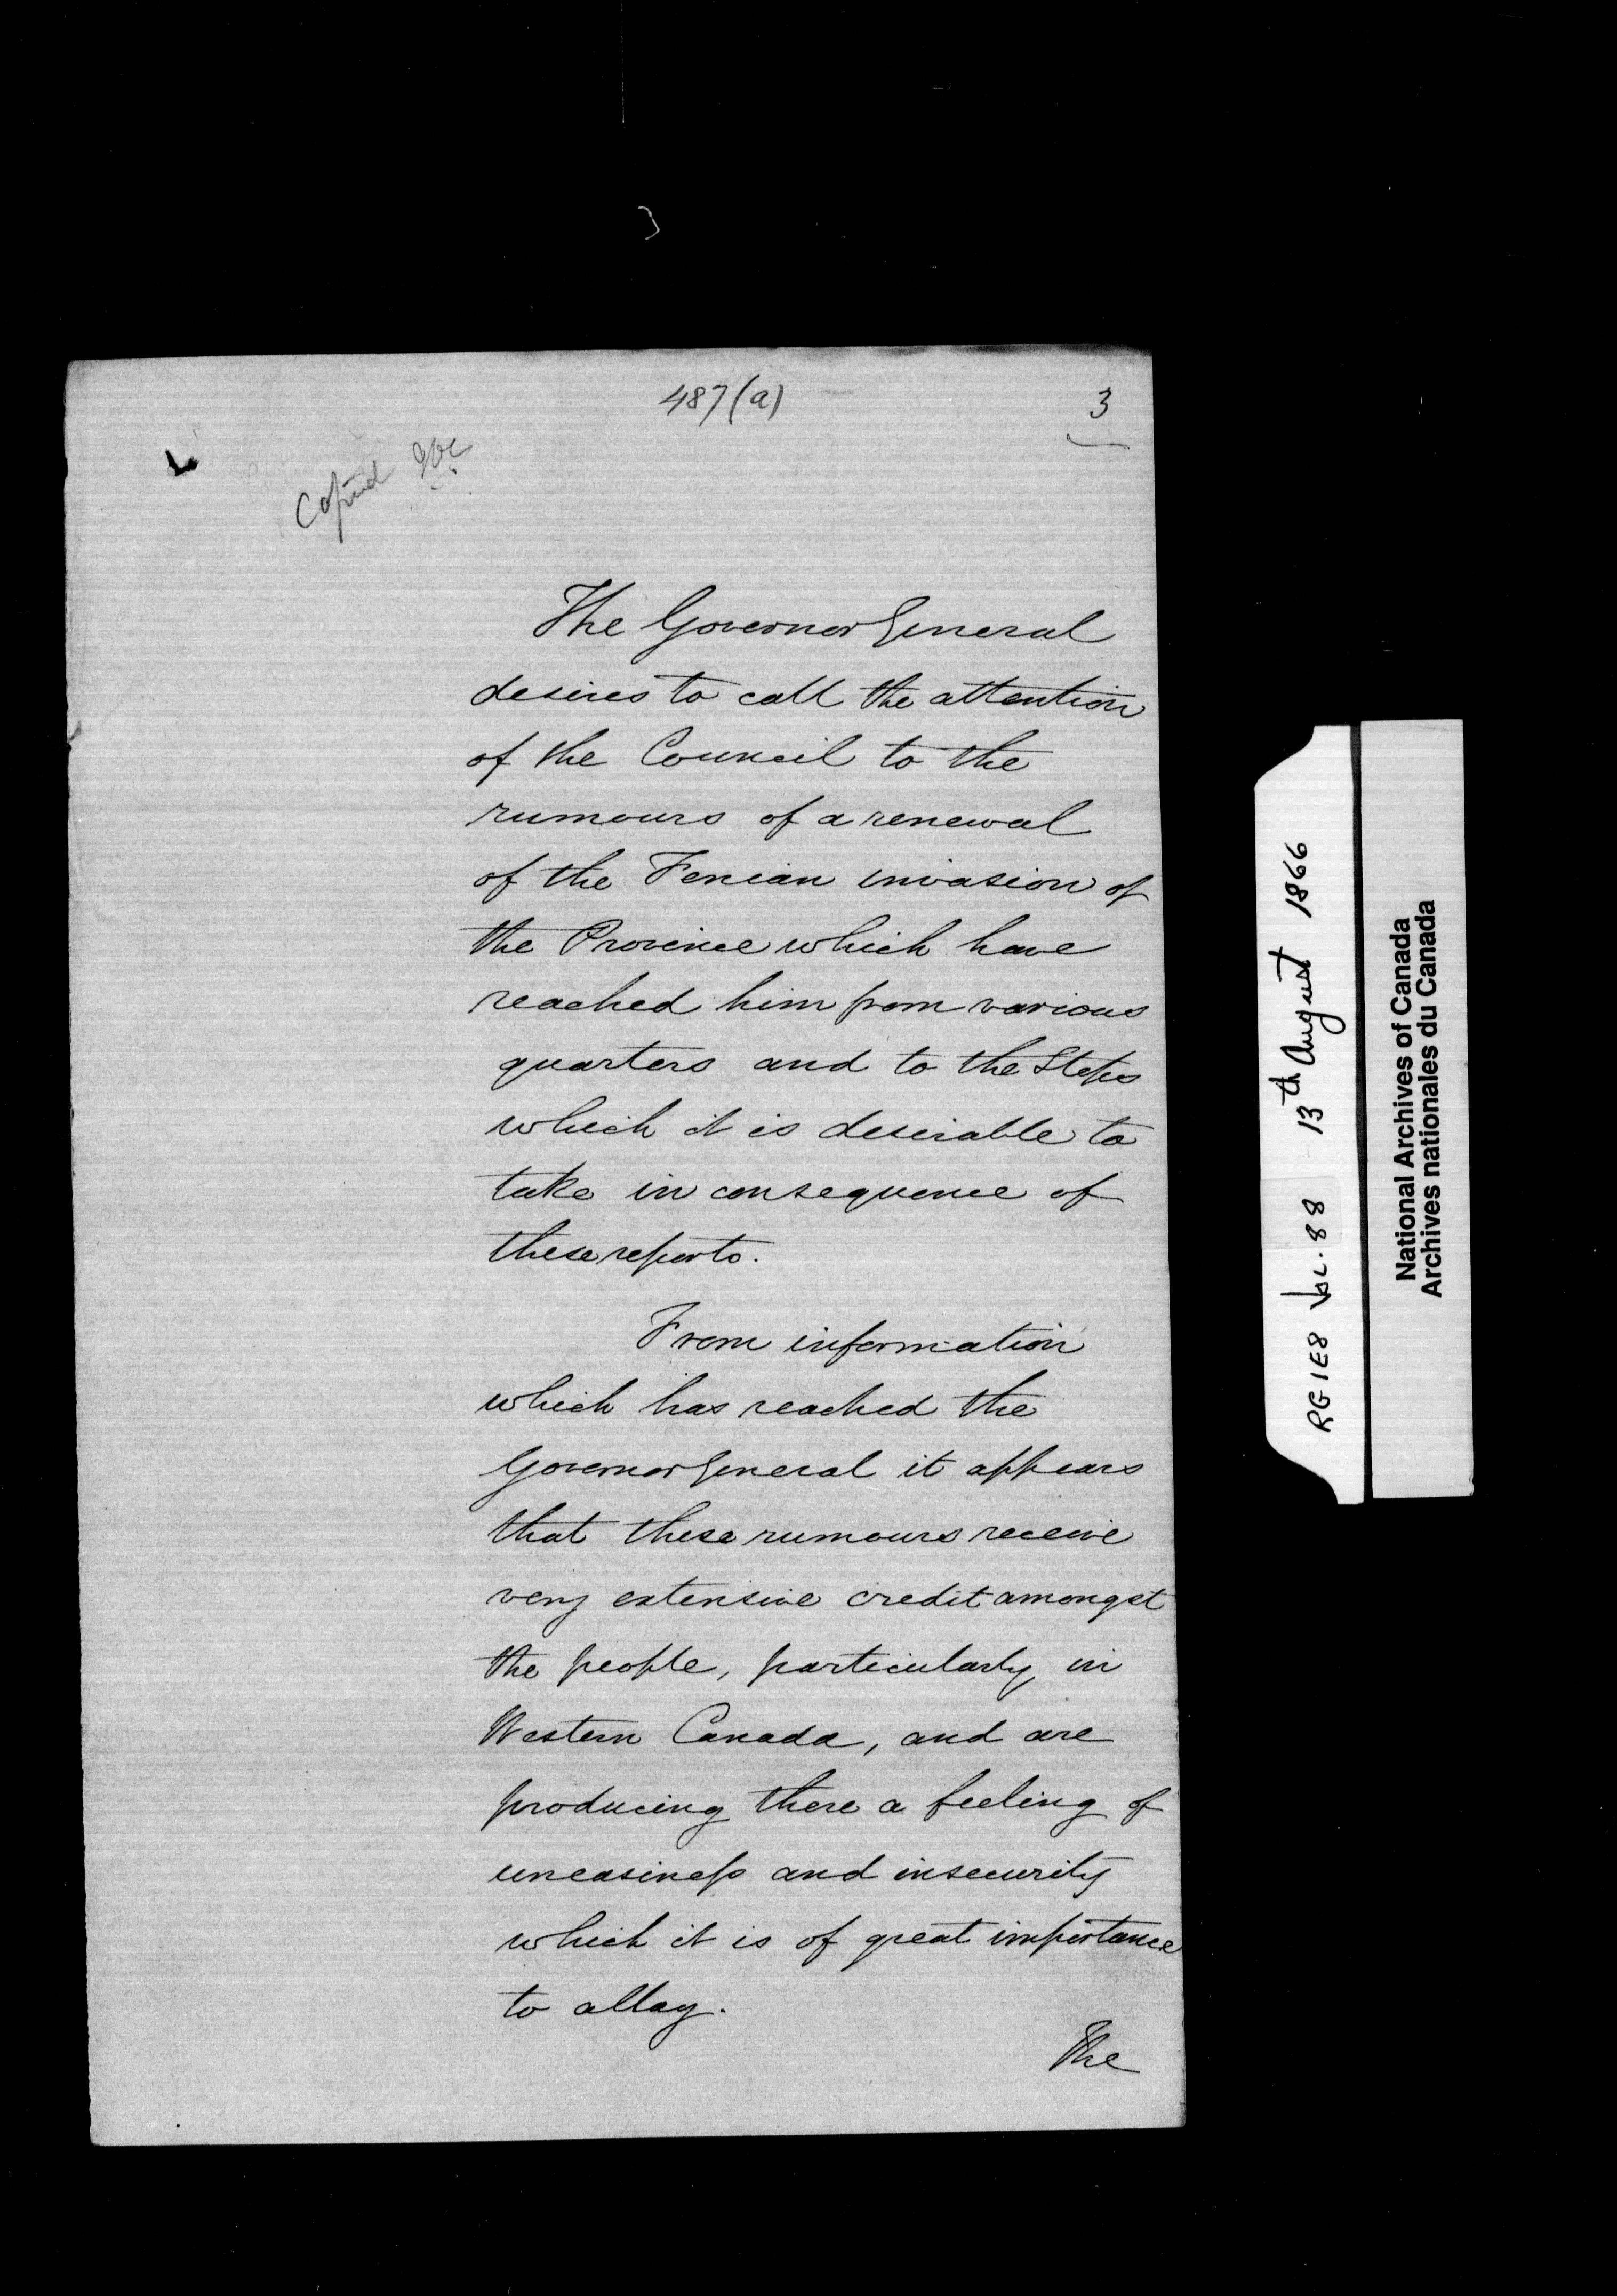 487(a)
3
Copied
The Governor General
desires to call the attention
of the Council to the
rumours of a renewal
of the Fenian invasion of
the Province which have
reached him from various
quarters and to the Steps
which it is desirable to
take in consequence of
these reports.
From information
which has reached the
Governor General it appears
that these rumours receive
very extensive credit amongst
the people, particularly in
Western Canada, and are
producing there a feeling of
uneasiness and insecurity
which it is of great importance
to allay.
The
RG1E8 Vol.88 13th August 1866
National Archives of Canada
Archives nationales du Canada